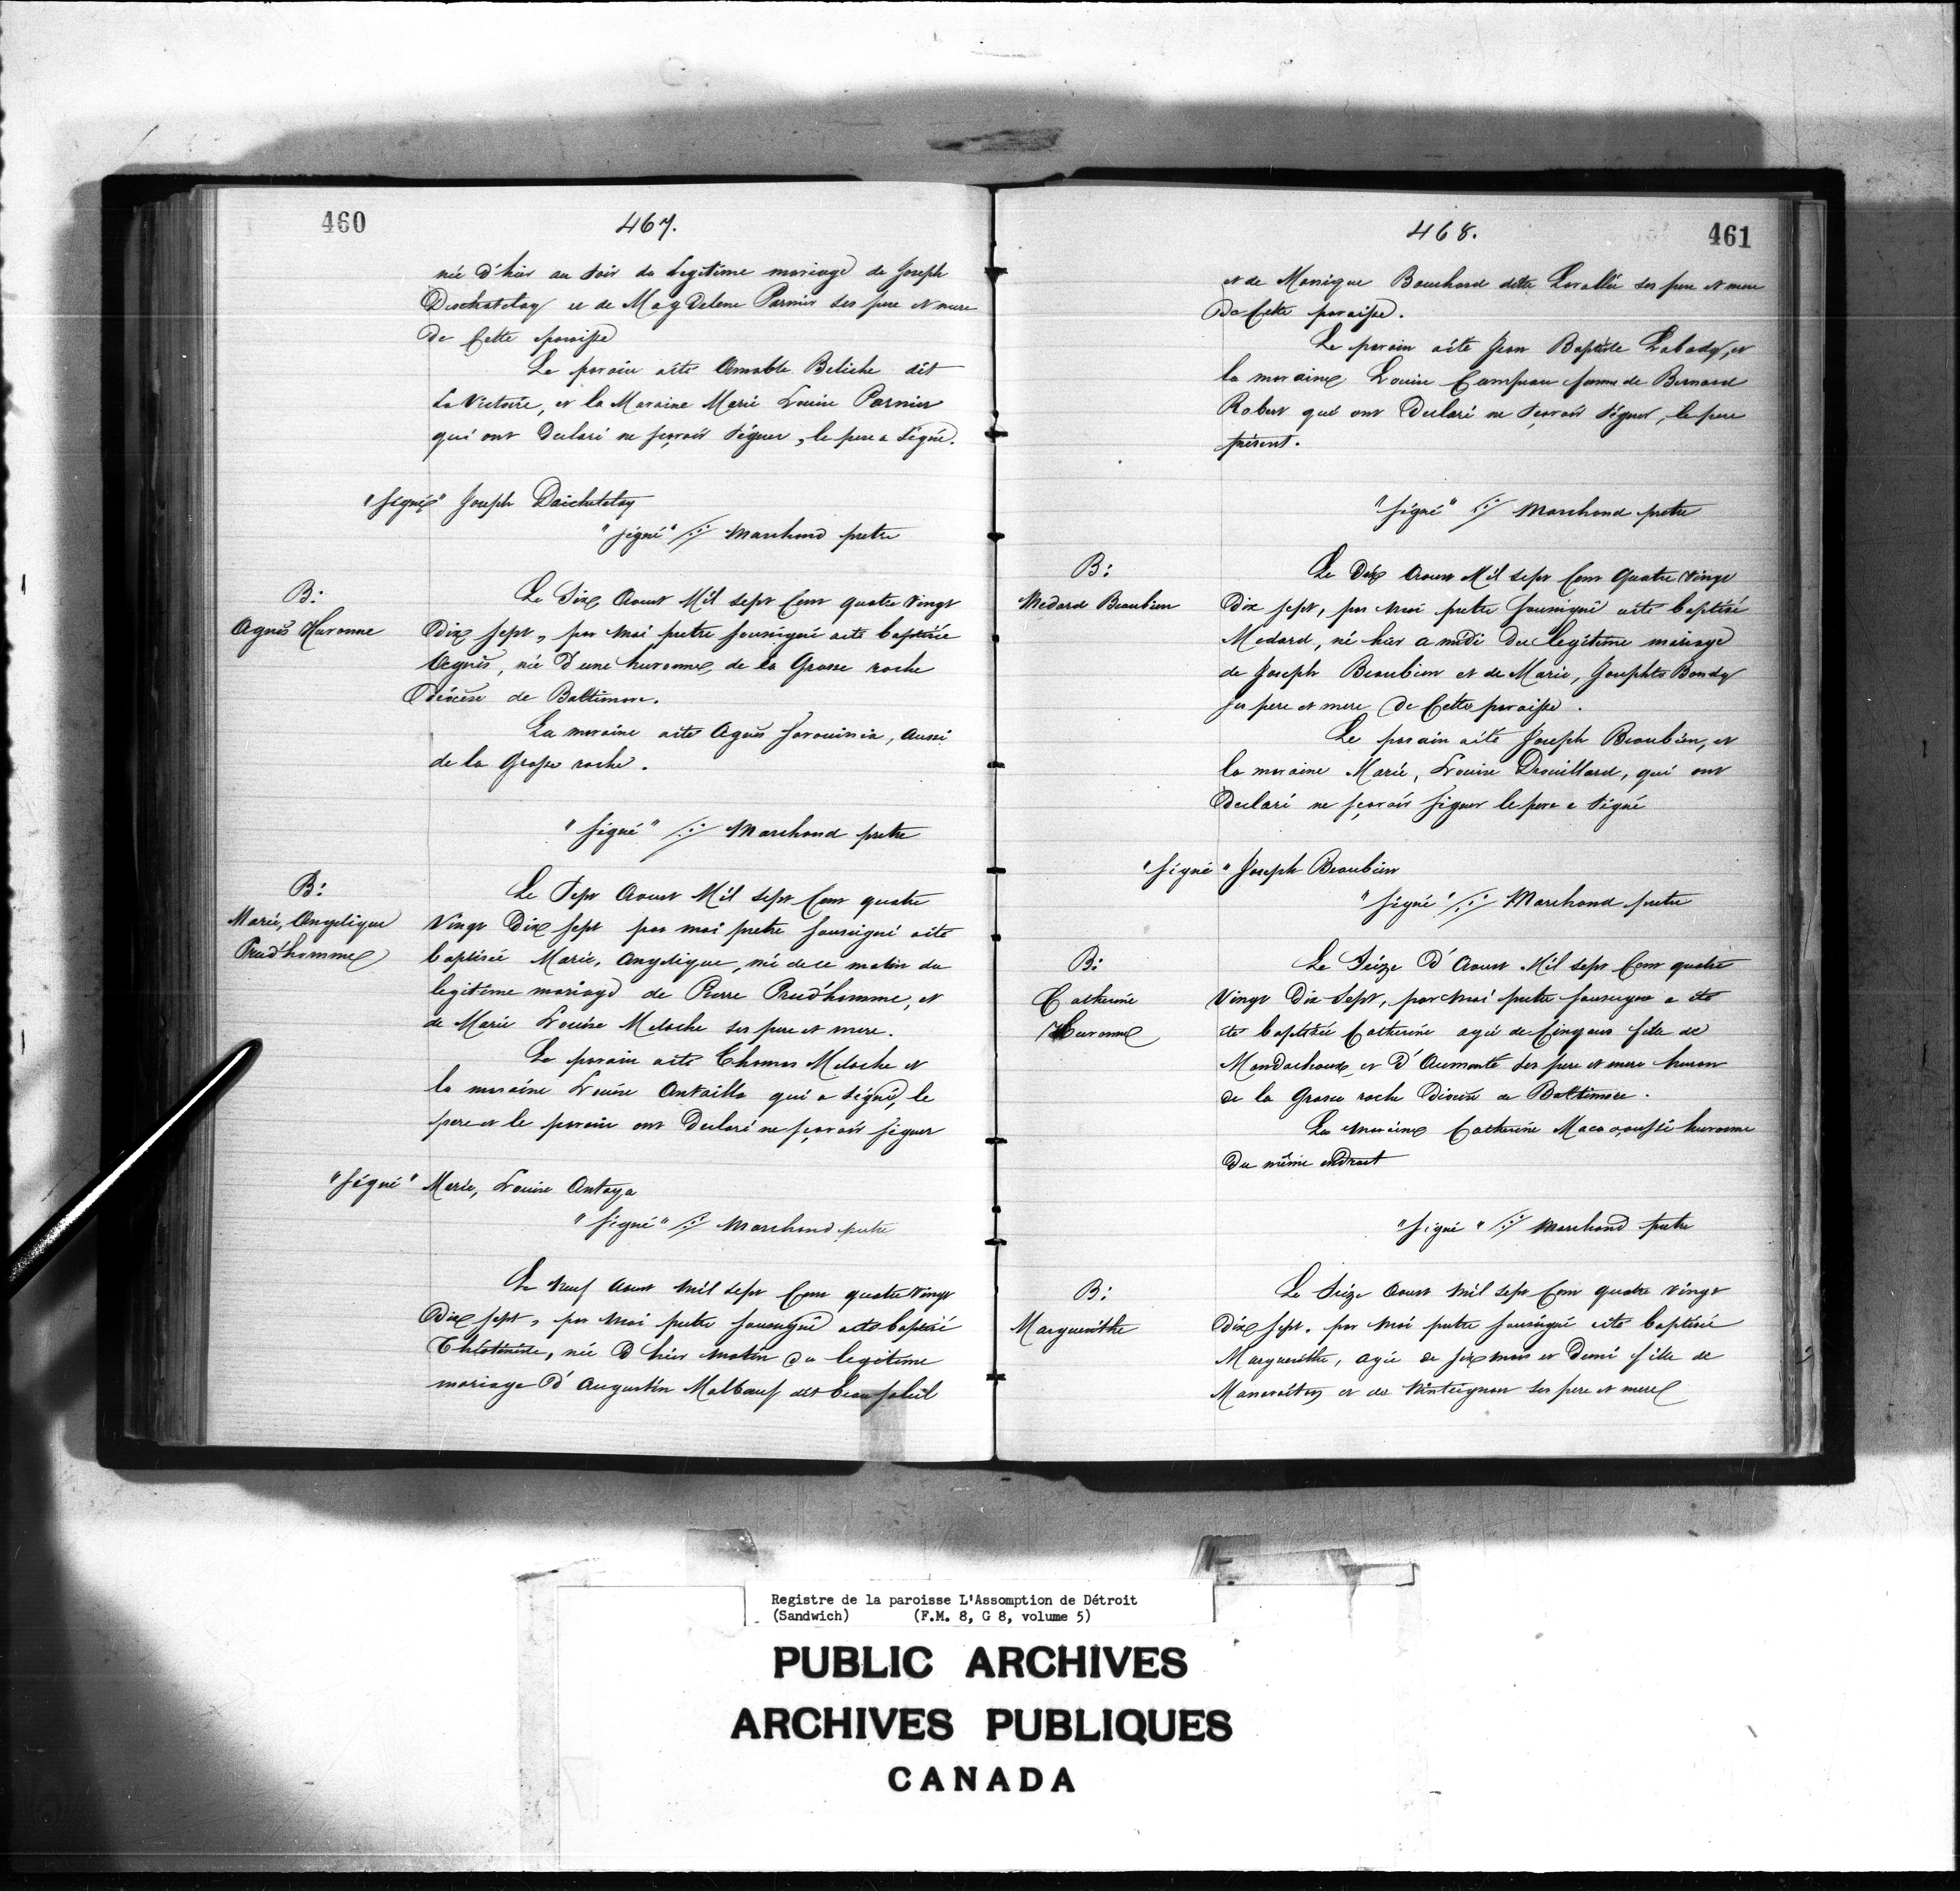 460
467.
née d'hier au soir du Legitime mariage de Joseph
Deschatelay et de Magdelene Parnier ses pere et mere
de Cette paroisse
Le parain aité Amable Beliche dit
La Victoire, et la Maraine Marie Louise Parnier
qui ont Declaré ne sçavoir Signer, le pere a Signé.
"signé" Joseph Daichatelay
"signé" Marchand pretre
B:
Agnès Huronne
Le Six Aoust Mil sept Cent quatre Vingt
Dix sept, par moi pretre soussigné aité baptisée
Agnès, née d'une huronne de la Grosse roche
Diócèse de Baltimore.
La maraine aité Agnès, Aussi
de la Grosse roche.
"signé" Marchand pretre
B:
Marie, Angelique
Prud'homme
Le Sept Aoust Mil sept Cent quatre
Vingt Dix sept par moi pretre soussigné aité
baptisée Marie, Angelique, née de ce matin du
legitime mariage de Pierre Prud'homme, et
de Marie Louise Meloche ses pere et mere.
Le parain aité Thomas Meloche et
la maraine Louise Antailla qui a signé, le
pere et le parain ont Declaré ne sçavoir signer
"signé" Marie, Louise Antaya
"signé" Marchand pretre
Le Neuf Aoust Mil sept Cent quatre Vingt
Dix sept, par moi pretre soussigné aité baptisé
née D'hier matin du legitime
mariage D'Augustin Malbœuf dit beausoleil
468.
461
et de Monique Bouchard ditte Lavallée ses pere et mere
De Cette paroisse.
Le parain aité Jean Baptiste Labady, et
la maraine Louise Campeau femme de Bernard
Robert qui ont Declaré ne sçavoir signer, le pere
présent.
"signé" Marchand pretre
B:
Medard Beaubien
Le Dix Aoust Mil sept Cent Quatre Vingt
Dix sept, par moi pretre soussigné aité baptisé
Medard, né hier a midi du legitime mariage
de Joseph Beaubien et de Marie, Josephte Bondy
ses pere et mere de Cette paroisse.
Le parain aité Joseph Beaubien, et
la maraine Marie, Louise Drouillard, qui ont
Declaré ne sçavoir signer le pere a signé
"signé" Joseph Beaubien
"signé" Marchand pretre
B:
Catherine
Huronne
Le Seize D'Aoust Mil sept Cent quatre
Vingt Dix Sept, par moi pretre soussigné a été
été baptisée Catherine agée de Cinq ans fille de
Mondachoux et D'Aumonté ses pere et mere huron
de la Grosse roche Diocèse de Baltimore.
La maraine Catherine Macoo, aussi huronne
Du même endroit
"signé" Marchand pretre
B:
Marguerithe
Le Seize Aoust Mil sept Cent quatre vingt
Dix sept. par moi pretre soussigné aité baptisée
Marguerithe, agée de six mois et Demi fille de
et de ses pere et mere
Registre de la paroisse L'Assomption de Détroit
(Sandwich) (F.M. 8, G 8, volume 5)
PUBLIC ARCHIVES
ARCHIVES PUBLIQUES
CANADA